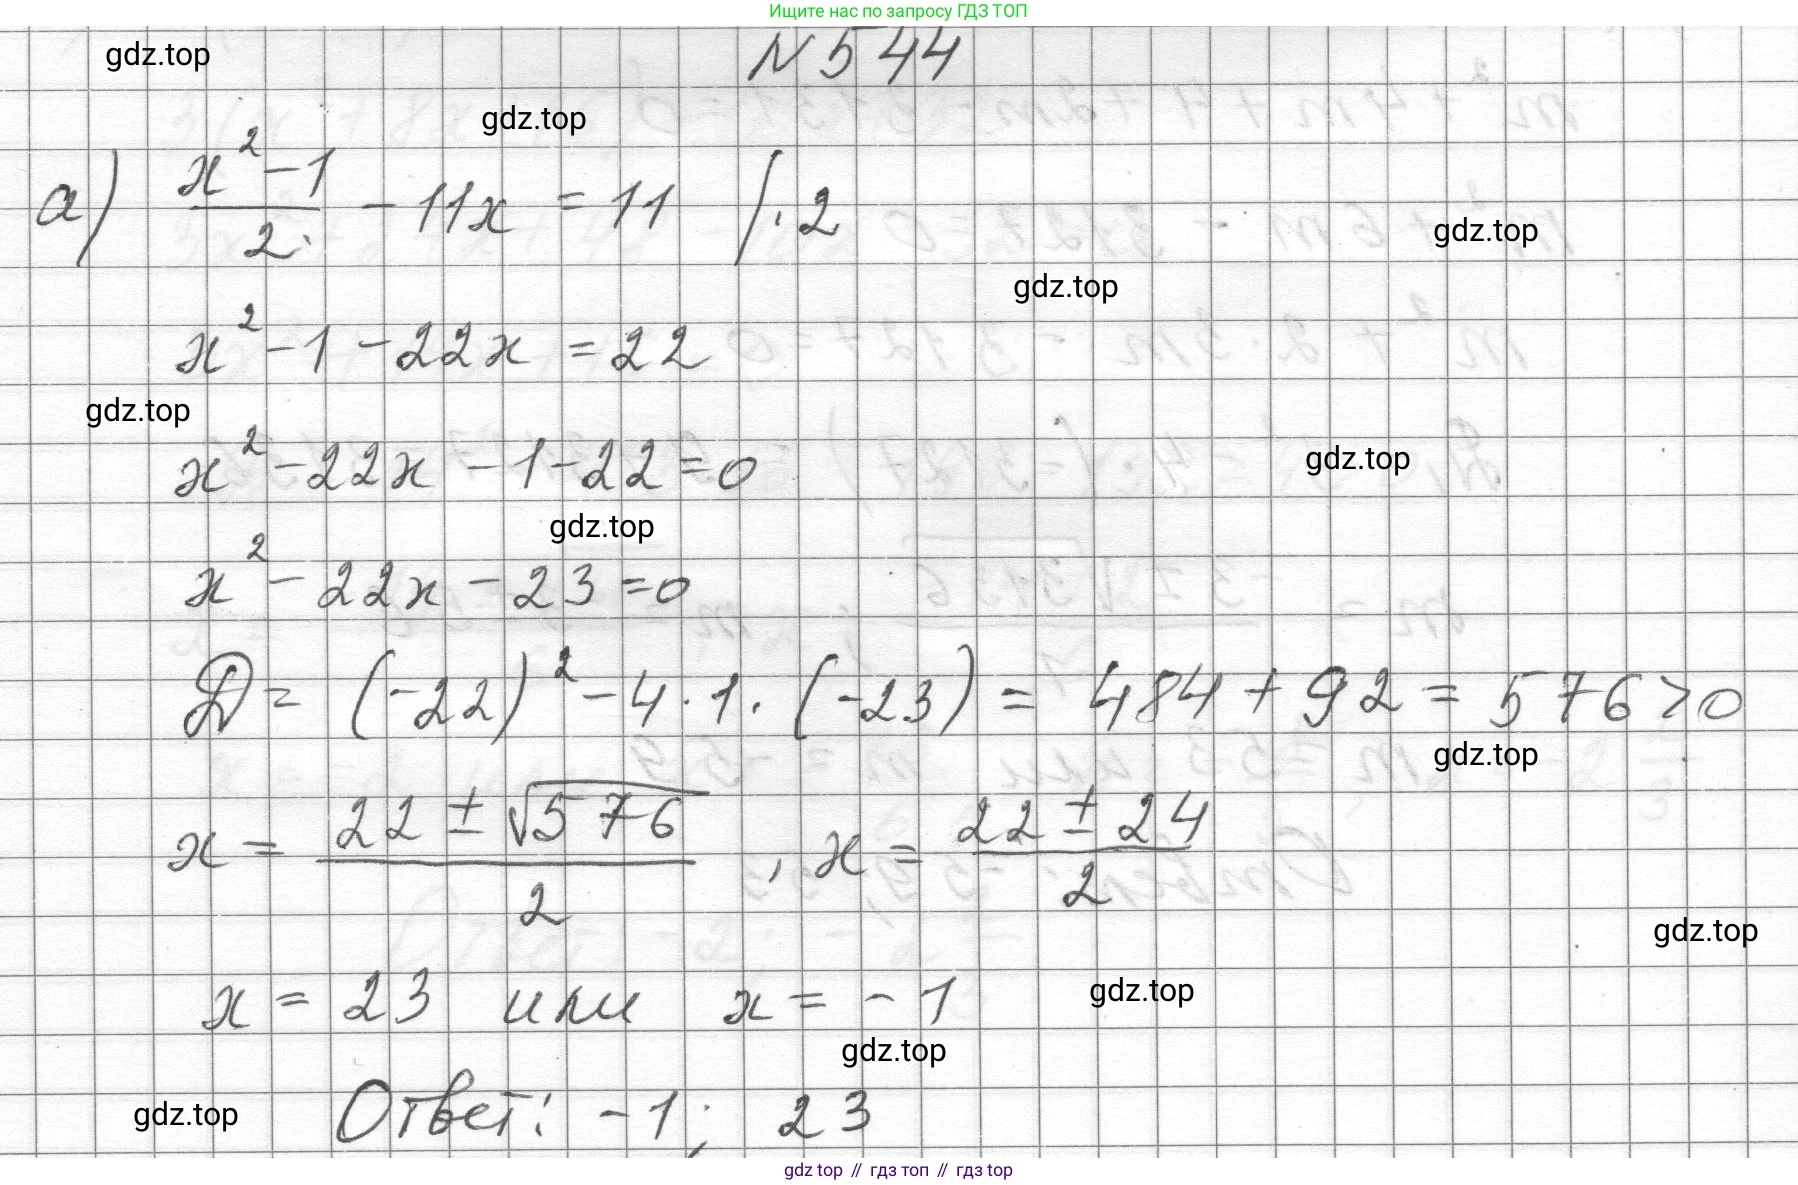 Ищите нас по запросу ГДЗ ТОП
N 544
gdz.top
gdz.top
а) (x² - 1)/2 - 11x = 11 | · 2
gdz.top
gdz.top
x² - 1 - 22x = 22
gdz.top
x² - 22x - 1 - 22 = 0
gdz.top
gdz.top
x² - 22x - 23 = 0
D = (-22)² - 4 · 1 · (-23) = 484 + 92 = 576 > 0
gdz.top
x = (22 ± √576)/2 , x = (22 ± 24)/2
gdz.top
x = 23 или x = -1
gdz.top
gdz.top
gdz.top
Ответ: -1; 23
gdz top // гдз топ // гдз top